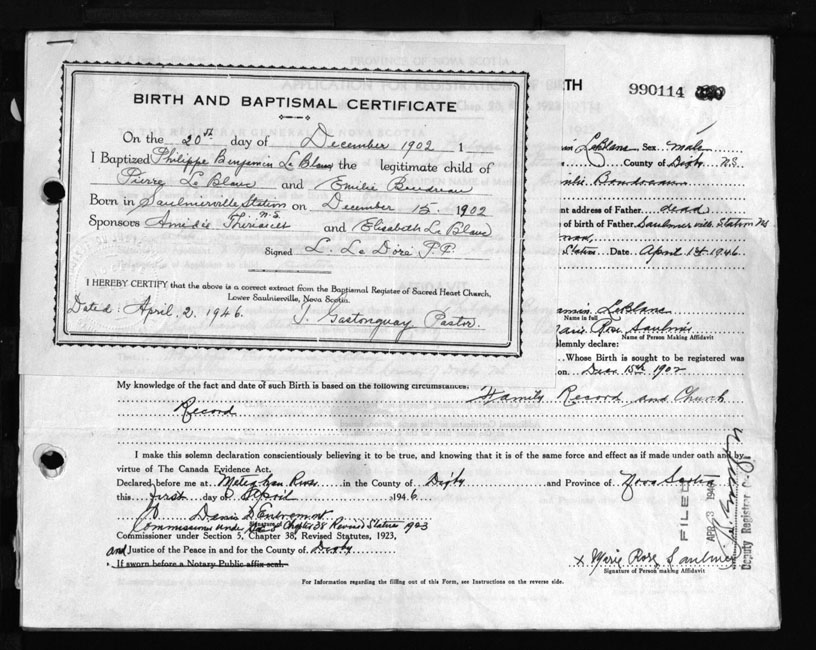 BIRTH AND BAPTISMAL CERTIFICATE
On the 20th day of December 1902 1
I Baptized Philippe Benjamin Le Blanc the legitimate child of
Pierre Le Blanc and Emilie Boudreau
Born in Saulnierville Station on December 15, 1902
N.S.
Sponsors Amidie and Elizabeth Le Blanc
Signed L. Le Doré P.P.
I HEREBY CERTIFY that the above is a correct extract from the Baptismal Register of Sacred Heart Church,
Lower Saulnierville, Nova Scotia.
Dated: April, 2, 1946. J. Gastonguay Pastor.
PROVINCE OF NOVA SCOTIA
990114
LeBlanc Sex male
County of Digby N.S.
address of Father dead
of birth of Father Saulnierville Station NS
Station Date April 1st 1946
LeBlanc
Name in full
Marie Rose Saulnier
Name of Person Making Affidavit
solemnly declare:
Whose Birth is sought to be registered was
on Dec. 15th 1902
My knowledge of the fact and date of such Birth is based on the following circumstances: Family Record and Church
Record
I make this solemn declaration conscientiously believing it to be true, and knowing that it is of the same force and effect as if made under oath and by
virtue of The Canada Evidence Act.
Declared before me at Meteghan River in the County of Digby and Province of Nova Scotia
this first day of April 1946
Denis D'Entremont
Commissioner under Chapter 38 Revised Statutes 1923
Commissioner under Section 5, Chapter 38, Revised Statutes, 1923,
and Justice of the Peace in and for the County of Digby
If sworn before a Notary Public affix seal.
x Marie Rose Saulnier
Signature of Person making Affidavit
For Information regarding the filling out of this Form, see Instructions on the reverse side.
FILED
APR 3 1946
Deputy Registrar